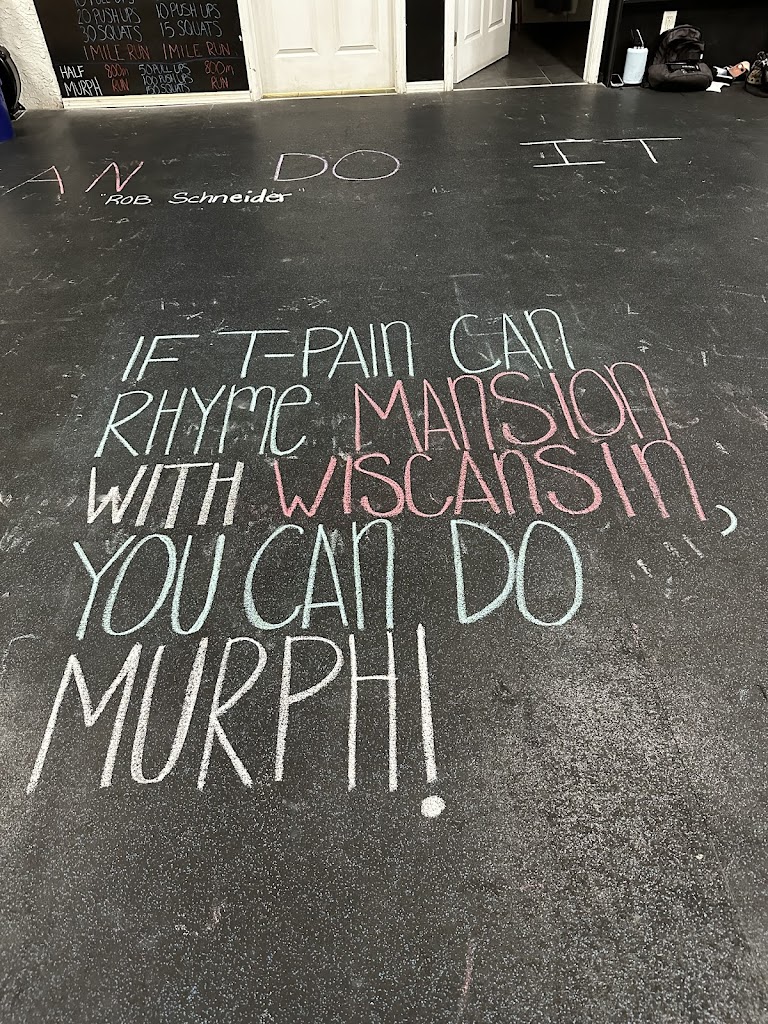 10 PULL UPS 10 PUSH UPS
20 PUSH UPS 15 SQUATS
30 SQUATS
1 MILE RUN 1 MILE RUN
HALF MURPH 800m RUN 50 PULL UPS 100 PUSH UPS 150 SQUATS 800m RUN
AN DO IT
"ROB Schneider"
IF T-PAIN CAN
RHYME MANSION
WITH WISCANSIN,
YOU CAN DO
MURPH!